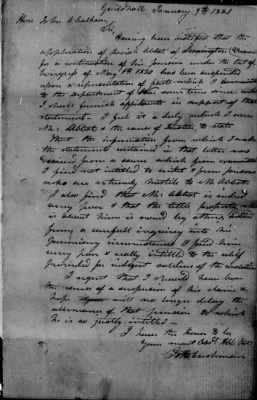 Guildhall January 9th 1821
Hon. John C. Calhoun
Sir,
Having been notified that the
application of Josiah Abbot of Vermont
for a continuation of his pension under the act of
Congress of May 1st 1820 has been suspended
upon a representation of facts which I
to the department of War some time since until
I shall furnish affidavits in support of that
statement. I feel it a duty which I owe
Mr Abbot & the cause of to state
that the information from which I made
the statement contained in that letter was
received from a source which from
I find not intitled to credit & from persons
who are extremely hostile to Mr Abbot.
I also find that Mr Abbot is indeed
very poor & that the little property
is about him is owned by others. After
going a careful inquiry into his
circumstances I find him
very poor & really intitled to the relief
provided for indigent soldiers of the revolution
I regret that I should have been
the cause of a suspension of his claim &
hope you will no longer delay the
allowance of that pension to which
he is so justly intitled —
I have the honor to be
your most Obt. Hbl. Ser.
Cushman